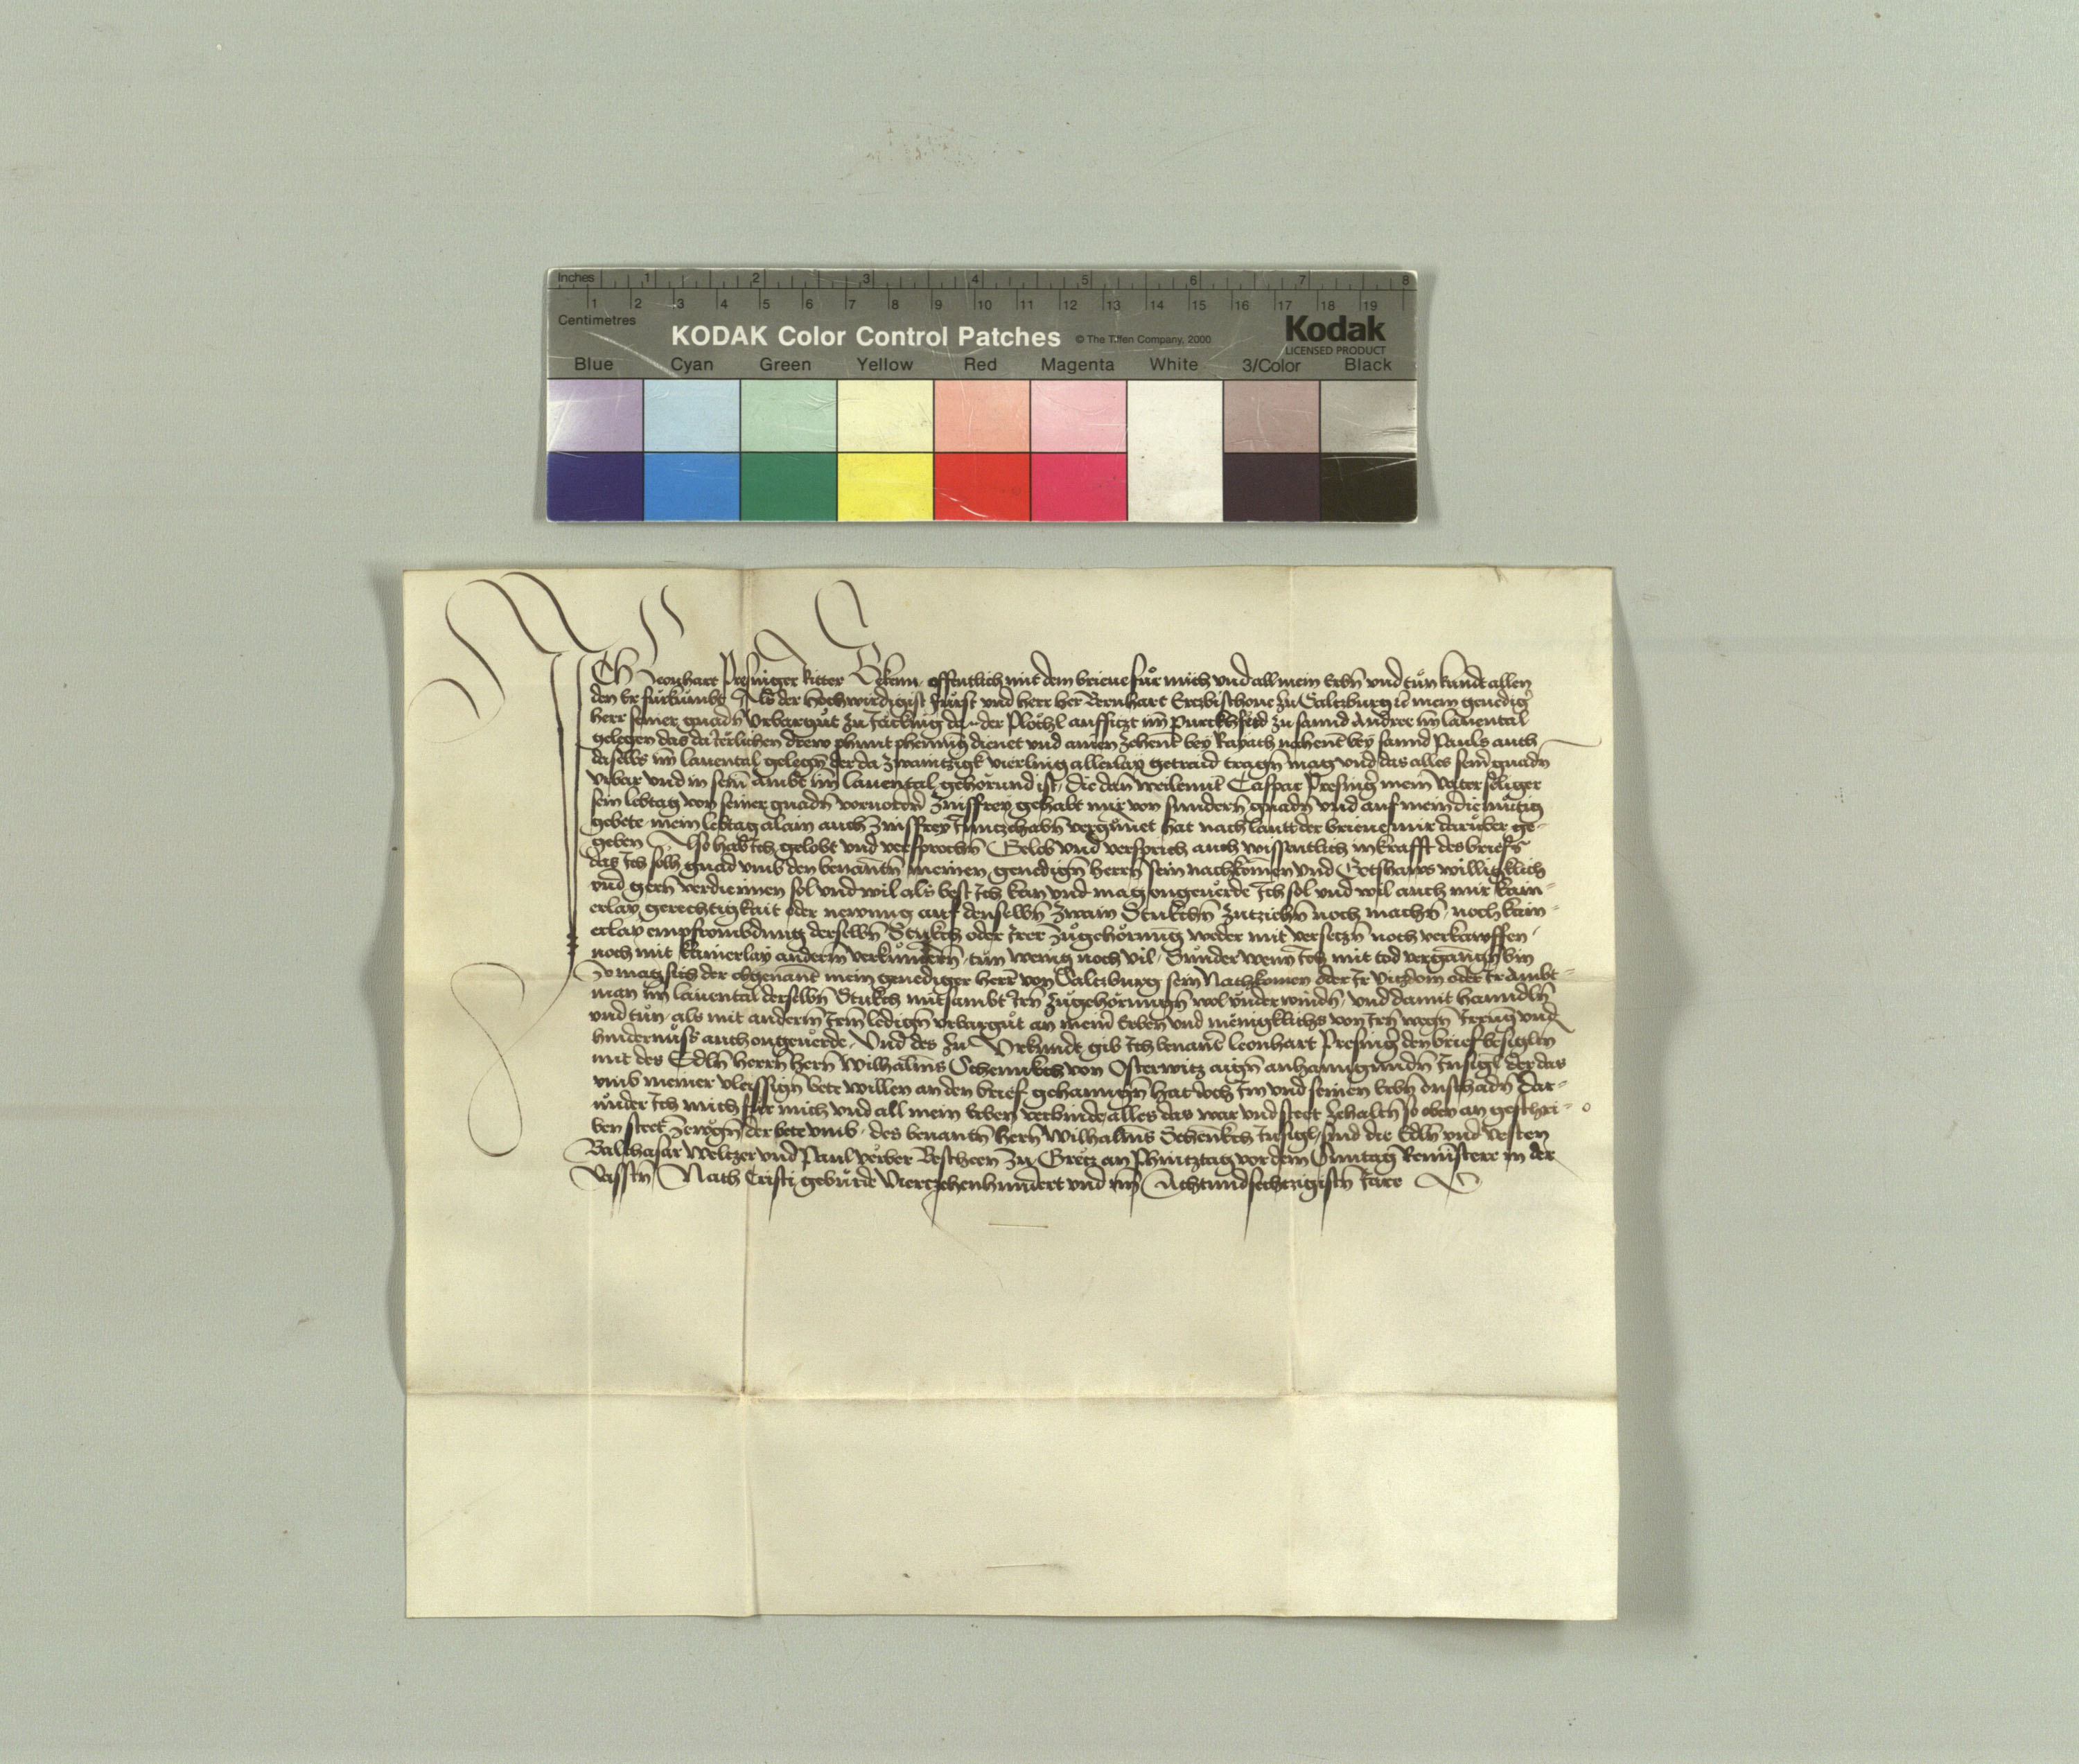 Inches 1 2 3 4 5 6 7 8
1 2 3 4 5 6 7 8 9 10 11 12 13 14 15 16 17 18 19
Centimetres
KODAK Color Control Patches © The Tiffen Company, 2000 Kodak
LICENSED PRODUCT
Blue Cyan Green Yellow Red Magenta White 3/Color Black
ICh Leonhart Presinger Ritter Bekenn offentlich mit dem brieue für mich vnd all mein Erbn̄ vnd tůn kundt allen
den Er fürkůmbt Als der Hochwirdigist Fürst vnd herr her Bernhart Ertzbischoue zu Saltzburg mein genediḡ
herr seiner gnadn̄ Vrbargůt zu darauf der Plöchl aufficzt im Purckhfrid zu sannd Andree im lauental
gelegen das da Jerlichen drew phunt phenning dienet vnd ainen zehent bey nehent bey sannd Pauls auch
daselbs im lauental gelegn̄ der da zwaintzigk vierling allerlay getraid tragn̄ mag vnd das alles seinr̄ gnadn̄
vrbar vnd in sein̄ Ambt im lauental gehörund ist, Die dan̄ weilent Caspar Presinḡ mein Vater seliger
sein lebtag von seiner gnadn̄ voruorđn̄ zinssfrey gehabt mir von sundern̄ gnadn̄ vnd auf mein diemütig
gebete mein lebtag alain auch zinssfrey Innczehabn̄ vergünnet hat nach lautt der brieue mir darüber ge-
geben Also hab Ich gelobt vnd versprochn̄ Gelob vnd versprich auch wissentlich in krafft des briefs
das Ich solh gnad vmb den benantn̄ meinen genedign̄ herrn̄ sein nachkomen vnd Gotshaws willigklich
vnd gern̄ verdiennen sol vnd wil als best Ich kan vnd mag ongeuerde Ich sol vnd wil auch mir kain-
erlay gerechtigkait oder newung auf denselbn̄ zwain Stukchn̄ zutziehn̄ noch machn̄, noch kain-
erlay empfrombdung derselbn̄ Stukch oder Irer zůgehörung weder mit versetzn̄ noch verkawffen
noch mit kainerlay anderm verkümbern̄, tůn wenig noch vil, Sunder wenn Ich mit tod vergangn̄ bin
So mag sich der obgenant mein genediger herr von Saltzburg sein Nachkomen oder Ir Vitzdom oder Ir Ambt-
man im lauental derselbn̄ Stukch mitsambt Irn̄ zůgehörungn̄ wol vnderwindn̄, vnd damit hanndln̄
vnd tůn, als mit anderm Irm̄ ledign̄ vrbargůt an mein̄ Erben vnd menigklichs von Irn̄ wegn̄ Irrung vnd
hindernüss auch ongeuerde, Vnd des zu Vrkundt gib Ich benant Leonhart Presinḡ den brief besigltn̄
mit des Edln̄ herrn̄ hern̄ Wilhalms Schennkch von Osterwitz aign̄ anhanngundn̄ Insigl der das
vmb meiner vleissign̄ bete willen an den brief gehanngn̄ hat doch Im vnd seinen Erbn̄ onschadn̄ Dar-
vnder Ich mich für mich vnd all mein Erben verbinde alles das war vnd stett zehaltn̄ so oben an geschri-
ben steet zewgn̄ der bete vmb, des benantn̄ hern̄ Wilhalms Schenkch Insigl, sind die Edln̄ vnd Vesten
Balthasar Weltzer vnd Paul Bescheen zu Gretz an Phintztag vor dem Sunntag Reminiscere in der
Vasstn̄ Nach Cristi gebürde Viertzehenhundert vnd im Achtundsechtzigistn̄ Jare